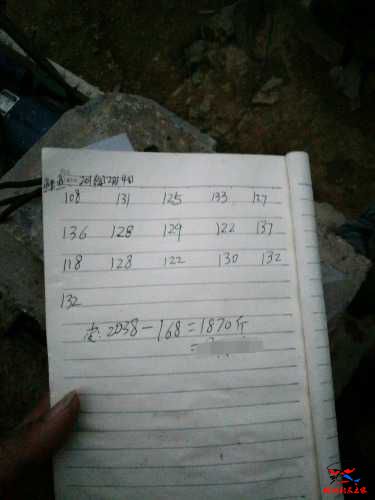 108 131 125 133 127
136 128 129 122 137
118 128 122 130 132
132
2038-168=1870斤
=